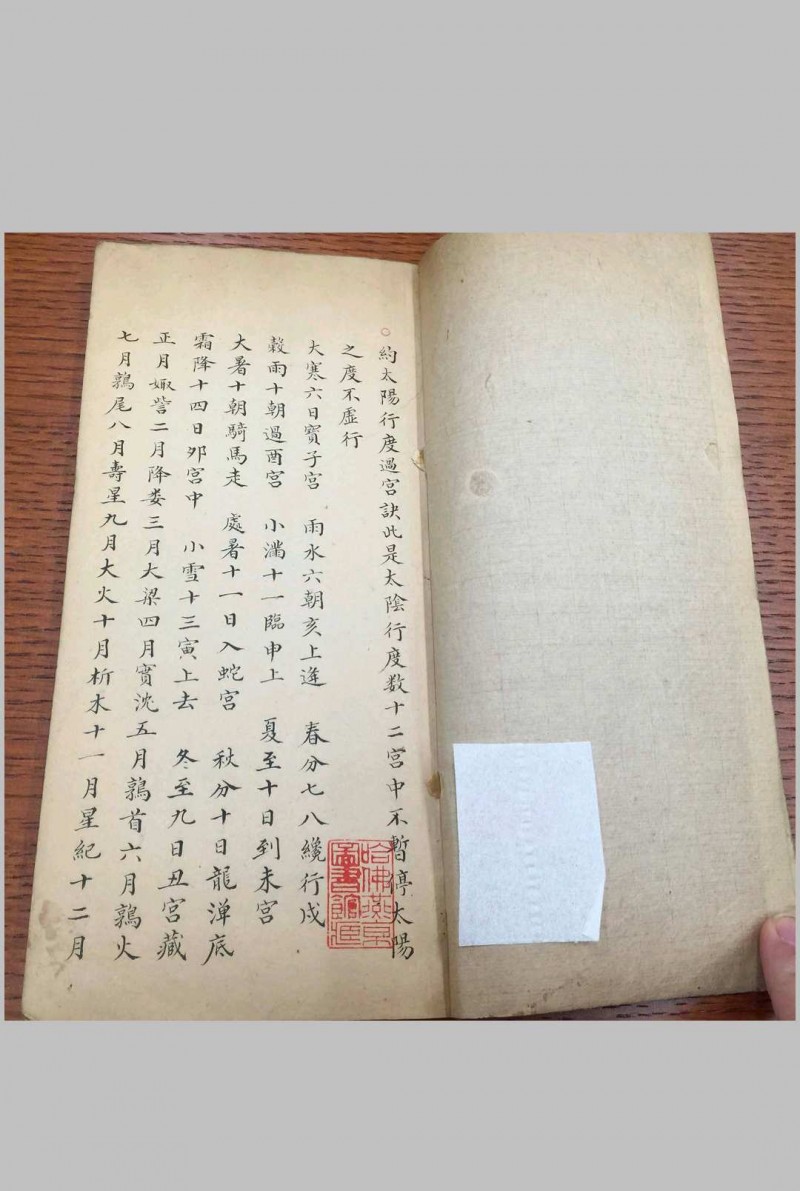 ○約太陽行度過宮訣此是太陰行度数十二宮中不暫停太陽
之度不虛行
大寒六日寳子宮　雨水六朝亥上逢　春分七八纔行戌
穀雨十朝過酉宮　小滿十一臨申上　夏至十日到未宮
大暑十朝騎馬走　處暑十一日入蛇宮　秋分十日龍潭底
霜降十四日夘宮中　小雪十三寅上去　冬至九日丑宮藏
正月娵訾二月降娄三月大梁四月實沈五月鶉首六月鶉火
七月鶉尾八月壽星九月大火十月析木十一月星紀十二月
哈佛燕京
圖書館臧